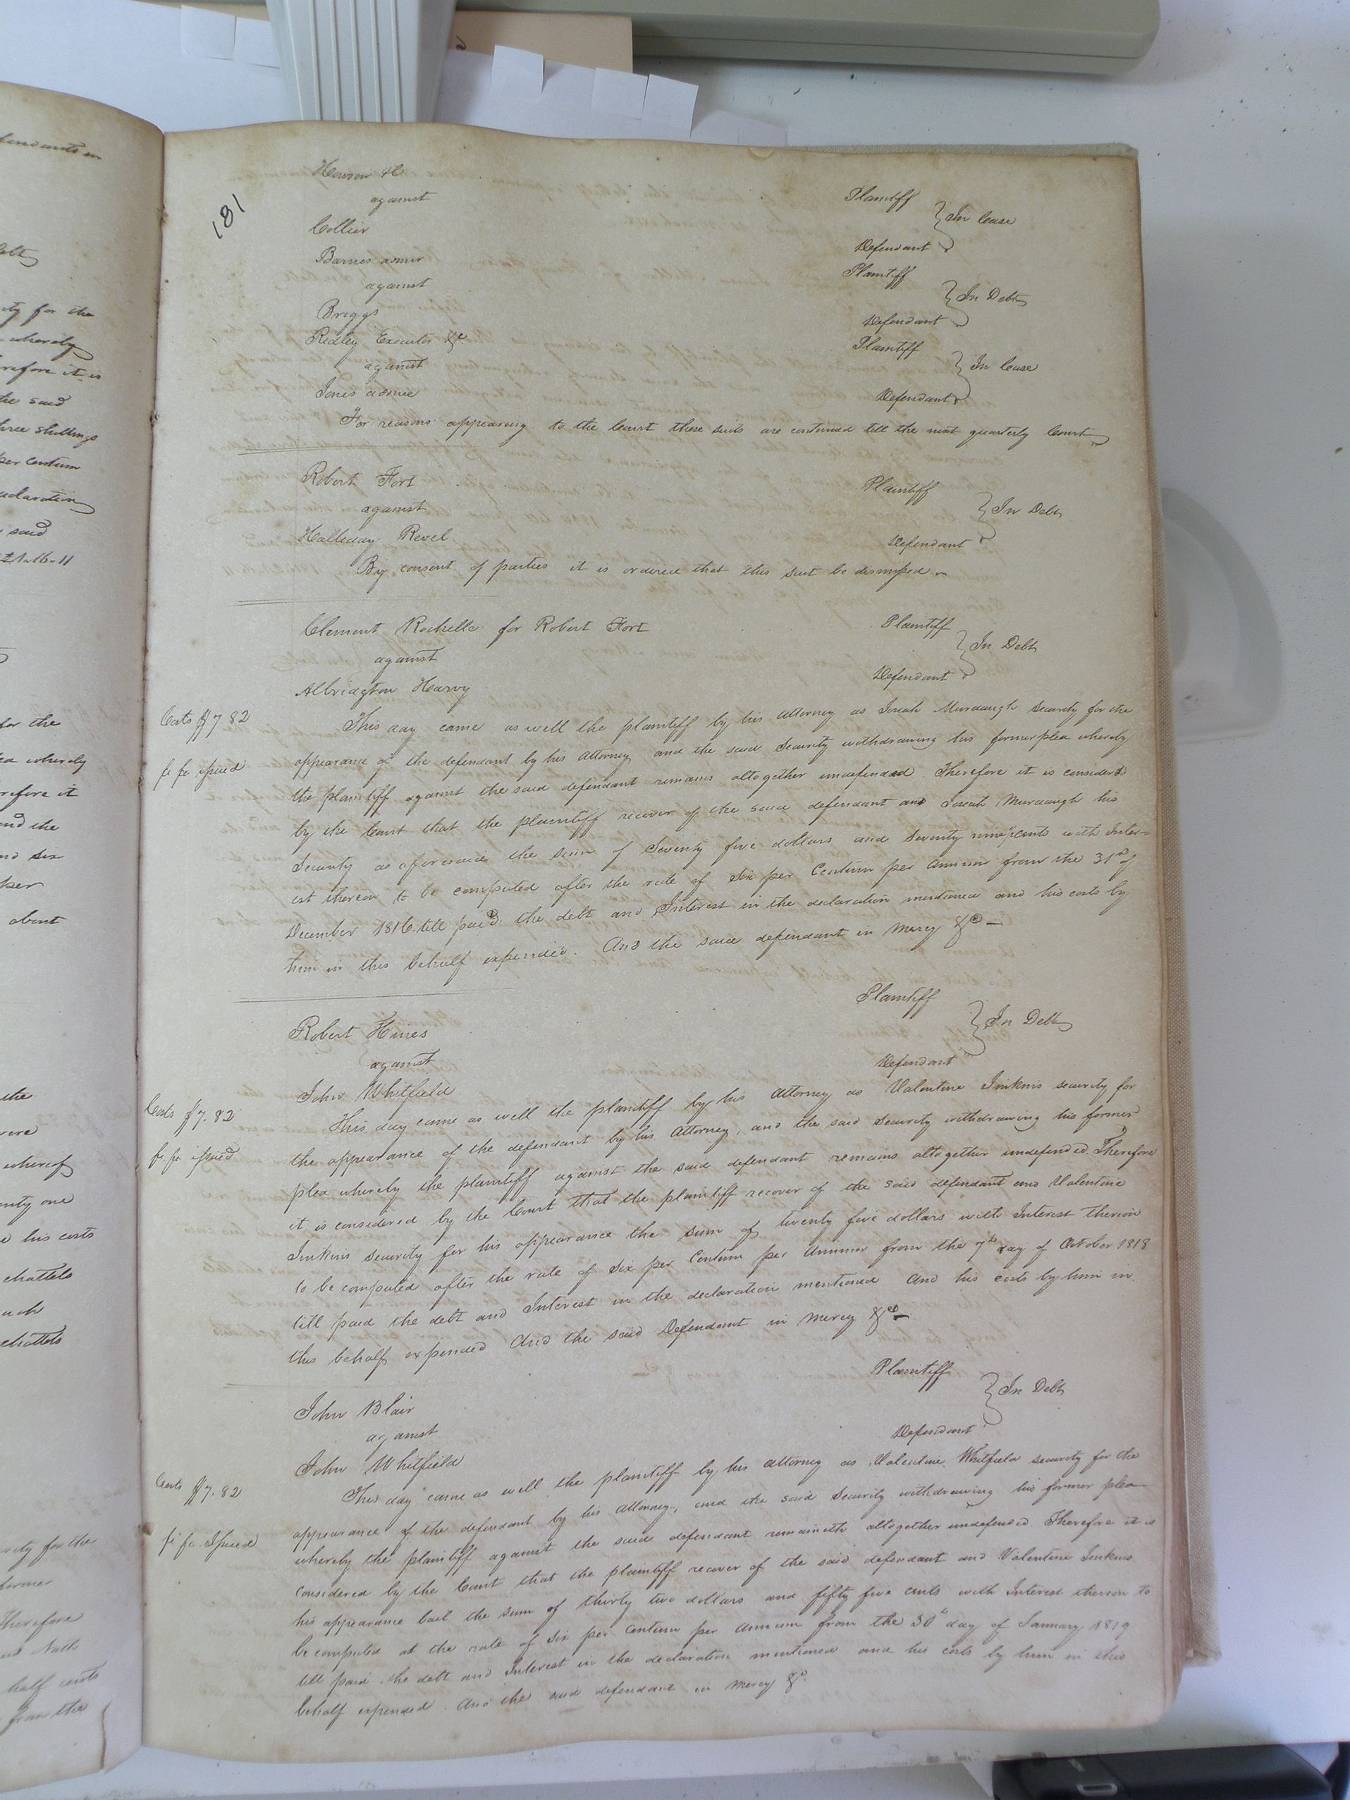 181
Plaintiff
against
In Case
Collier
Defendant
Barnes admr
Plaintiff
against
In Debt
Briggs
Defendant
Ridley Executor &c
Plaintiff
against
In Case
Jones admr
Defendant
For reasons appearing to the Court these suits are continued till the next quarterly Court
Robert Fort
Plaintiff
against
In Debt
Halleday Revel
Defendant
By consent of parties it is ordered that this suit be dismissed
Clement Rochelle for Robert Fort
Plaintiff
against
In Debt
Albridgton Harvy
Defendant
Costs $7.82
This day came as well the plaintiff by his attorney as Josiah Murdaugh security for the
appearance of the defendant by his attorney and the said Security withdrawing his former plea whereby
fi fa issued
the plaintiff against the said defendant remains altogether undefended Therefore it is considered
by the Court that the plaintiff recover of the said defendant and Josiah Murdaugh his
Security as aforesaid the sum of Seventy five dollars and Seventy nine cents with Inter-
est thereon to be computed after the rate of six per Centum per Annum from the 31st of
December 1816 till paid the debt and Interest in the declaration mentioned and his costs by
him in this behalf expended. And the said defendant in mercy &c
Robert Hines
Plaintiff
against
In Debt
John Whitfield
Defendant
Costs $7.82
This day came as well the plaintiff by his Attorney as Valentine Jinkins security for
the appearance of the defendant by his Attorney, and the said Security withdrawing his former
fi fa issued
plea whereby the plaintiff against the said defendant remains altogether undefended. Therefore
it is considered by the Court that the plaintiff recover of the said defendant and Valentine
Jinkins security for his appearance the sum of twenty five dollars with Interest thereon
to be computed after the rate of six per Centum per Annum from the 7th day of October 1818
till paid the debt and Interest in the declaration mentioned And his costs by him in
this behalf expended And the said Defendant in mercy &c
John Blair
Plaintiff
against
In Debt
John Whitfield
Defendant
Costs $7.82
This day came as well the plaintiff by his attorney as Valentine Whitfield security for the
appearance of the defendant by his attorney, and the said Security withdrawing his former plea
fi fa Issued
whereby the plaintiff against the said defendant remaineth altogether undefended Therefore it is
considered by the Court that the plaintiff recover of the said defendant and Valentine Jinkins
his appearance bail the sum of thirty two dollars and fifty five cents with Interest thereon to
be computed at the rate of six per Centum per Annum from the 30th day of January 1819
till paid the debt and Interest in the declaration mentioned and his costs by him in this
behalf expended. And the said defendant in mercy &c